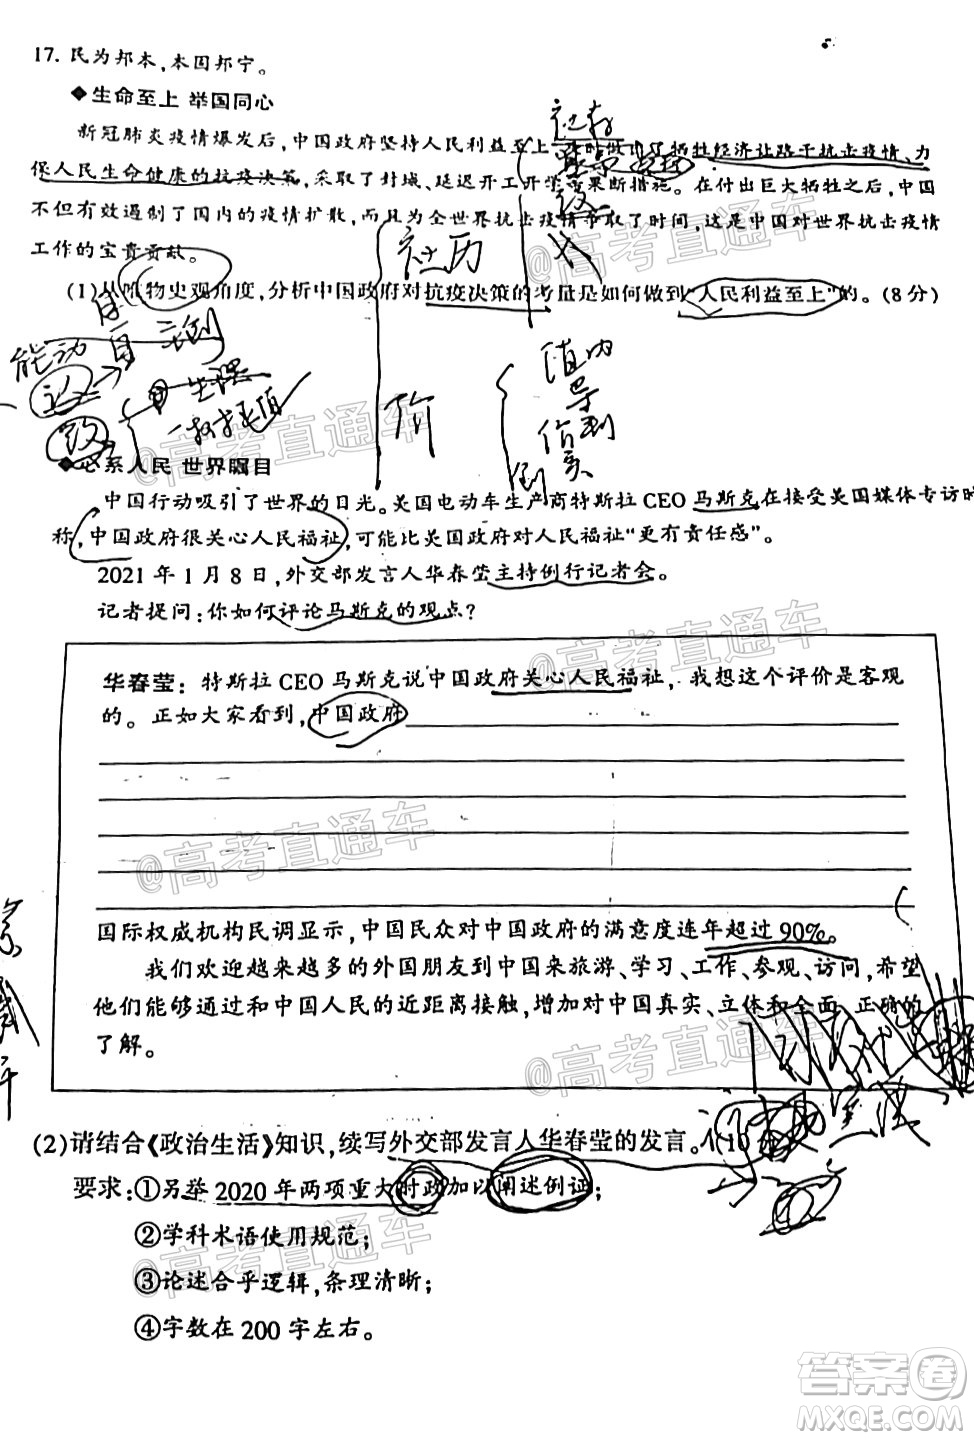 17. 民为邦本,本固邦宁。
◆生命至上 举国同心
新冠肺炎疫情爆发后,中国政府坚持人民利益至上,及时做出了牺牲经济让路于抗击疫情、力
保人民生命健康的抗疫决策,采取了封城、延迟开工开学等果断措施。在付出巨大牺牲之后,中国
不但有效遏制了国内的疫情扩散,而且为全世界抗击疫情争取了时间,这是中国对世界抗击疫情
工作的宝贵贡献。
(1)从唯物史观角度,分析中国政府对抗疫决策的考量是如何做到“人民利益至上”的。(8分)
能动
社历
价
◆心系人民 世界瞩目
中国行动吸引了世界的目光。美国电动车生产商特斯拉CEO马斯克在接受美国媒体专访时
称,中国政府很关心人民福祉,可能比美国政府对人民福祉“更有责任感”。
2021年1月8日,外交部发言人华春莹主持例行记者会。
记者提问:你如何评论马斯克的观点?
华春莹:特斯拉CEO马斯克说中国政府关心人民福祉,我想这个评价是客观
的。正如大家看到,中国政府
国际权威机构民调显示,中国民众对中国政府的满意度连年超过90%。
我们欢迎越来越多的外国朋友到中国来旅游、学习、工作、参观、访问,希望
他们能够通过和中国人民的近距离接触,增加对中国真实、立体和全面、正确的
了解。
(2)请结合《政治生活》知识,续写外交部发言人华春莹的发言。(10分)
要求:①另举2020年两项重大时政加以阐述例证;
②学科术语使用规范;
③论述合乎逻辑,条理清晰;
④字数在200字左右。
@高考直通车
@高考直通车
@高考直通车
@高考直通车
@高考直通车
@高考直通车
答案卷
MXQE.COM